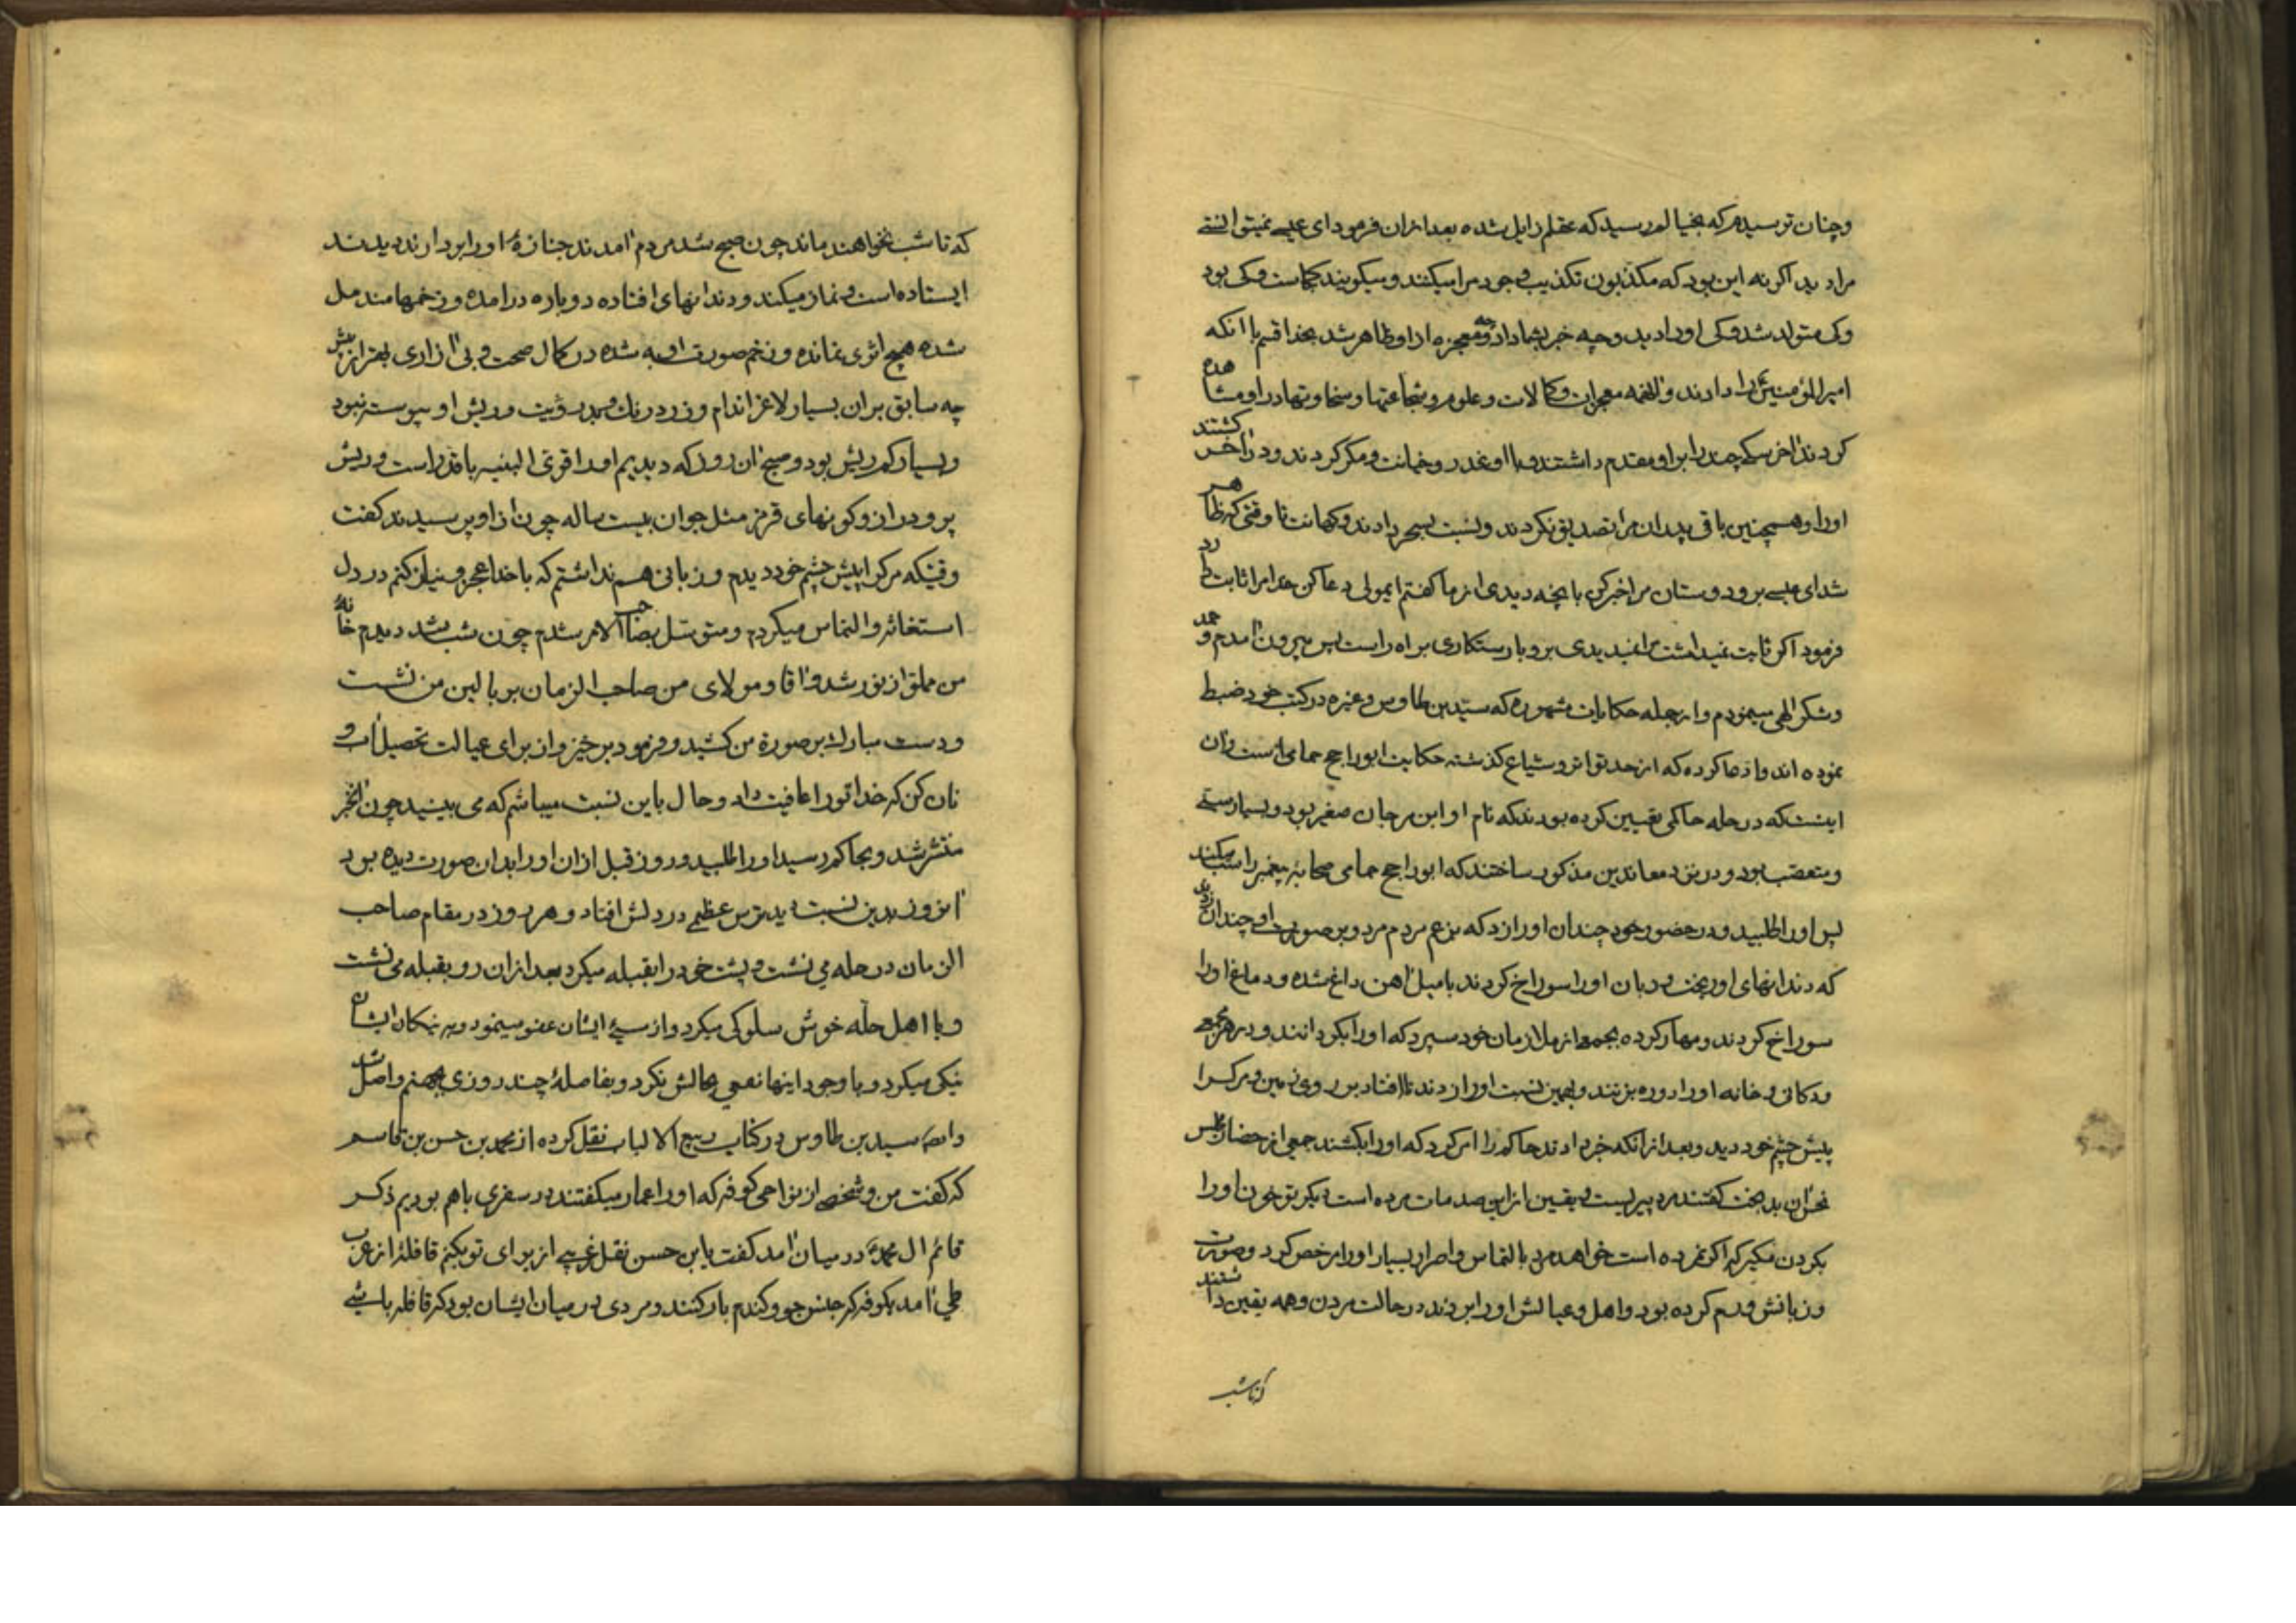 وچنان ترسیدم که بخیالم رسید که عقلم زایل شده بعد ازان فرمود ای عیسی نمیتوانستی
مرا دید اگر نه این بود که مکذبون تکذیب وجود مرا میکنند و میگویند کجاست و کی بود
و کی متولد شد و کی اورا دید و چه خبر بشما داد و چه معجزه از او ظاهر شد بخدا قسم با انکه
امیرالمؤمنین را دارند و انهمه معجزات و کمالات و علوم و شجاعتها و سخاوتها در او مشاهده
کردند اخر سگی چند را بر او مقدم داشتند و با او غدر و خیانت و مکر کردند و در اخر کشتند
اورا و همچنین باقی پدران مرا تصدیق نکردند و نسبت بسحر دادند و کهانت تا وقتی که ظاهر
شد ای عیسی برو دوستان مرا خبر کن بانچه دیدی از ما گفتم ایمولی دعا کن خدا مرا ثابت دارد
فرمود اگر ثابت نمیداشت مرا نمیدیدی برو با رستکاری براه راست پس بیرون امدم و حمد
و شکر الهی مینمودم و از جمله حکایات مشهوره که سید بن طاوس و غیره در کتب خود ضبط
نموده اند و ادعا کرده که از حد تواتر و شیاع گذشته حکایت ابوراجح حمامی است و ان
اینست که در حله حاکمی تعیین کرده بودند که نام او ابن مرجان صغیر بود و بسیار سنی
و متعصب بود و در نزد معاندین مذکور ساختند که ابوراجح حمامی صحابهٔ پیغمبر را سب میکند
پس اورا طلبید و در حضور خود چندان اورا زد که بزعم مردم مرد و بر صورت او چندان زدند
که دندانهای او ریخت و زبان اورا سوراخ کردند با میل اهن داغ شده و دماغ اورا
سوراخ کردند و مهار کرده بجمعی از ملازمان خود سپرد که اورا بگردانند و در هر مجمعی
و دکانی و خانه اورا دوره بزنند و بهمین نسبت اورا زدند تا افتاد بر روی زمین و مرک را
پیش چشم خود دید و بعد از انکه خبر دادند حاکم را امر کرد که اورا بکشند جمعی از حضار مجلس
نحس ان بدبخت گفتند مرد پیریست و یقین از این صدمات مرده است دیگر تو خون اورا
بگردن مگیر که اگر نمرده است خواهد مرد بالتماس و اصرار بسیار اورا مرخص کرد و صورت
و زبانش ورم کرده بود و اهل و عیالش اورا بردند در حالت مردن و همه یقین داشتند
که تا شب
که تا شب نخواهند ماند چون صبح شد مردم امدند جنازهٔ اورا بردارند دیدند
ایستاده است و نماز میکند و دندانهای افتاده دوباره درامده و زخمها مندمل
شده هیچ اثری نمانده و زخم صورت او به شده در کمال صحت و بی ازاری بهتر از پیش
چه سابق بران بسیار لاغر اندام و زرد رنک و بود و ریش او پیوسته نبود
و بسیار کم ریش بود و صبح ان روز که دیدیم اورا قوی البنیه با قد راست و ریش
پر و دراز و گونهای قرمز مثل جوان بیست ساله چون از او پرسیدند گفت
وقتیکه مرک را پیش چشم خود دیدم و زبانی هم نداشتم که با خدا عجز و نیاز کنم در دل
استغاثه و التماس میکردم و متوسل بصاحب الامر شدم چون شب شد دیدم خانهٔ
من مملو از نور شد و اقا و مولای من صاحب الزمان بر بالین من نشست
و دست مبارک بر صورة من کشید و فرمود برخیز و از برای عیالت تحصیل اب و
نان کن که خدا تورا عافیت داد و حال باین نسبت میباشم که می بینید چون این خبر
منتشر شد و بحاکم رسید اورا طلبید و روز قبل از ان اورا بدان صورت دیده بود
امروز بدین نسبت دید ترس عظیمی در دلش افتاد و هر روز در مقام صاحب
الزمان در حله می نشست و پشت خود را بقبله میکرد بعد از ان رو بقبله می نشست
و با اهل حله خوش سلوکی میکرد و از مسئ ایشان عفو مینمود و به نیکان ایشان
نیکی میکرد و با وجود اینها نفعی بحالش نکرد و بفاصلهٔ چند روزی بجهنم واصل شد
وایضا سید بن طاوس در کتاب ربیع الالباب نقل کرده از محمد بن حسن بن قاسم
که گفت من و شخصی از نواحی کوفه که اورا عمار میگفتند در سفری باهم بودیم ذکر
قائم ال محمد در میان امد گفت یا بن حسن نقل غریبی از برای تو بکنم قافلهٔ از عرب
طی امد بکوفه که جنس جو و گندم بار کنند و مردی در میان ایشان بود که قافله باشی